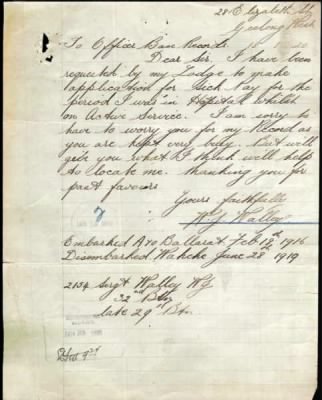 28 Elizabeth St
Geelong West
To Officer Base Records
Dear Sir, I have been
requested by my Lodge to make
application for Sick Pay for the
period I was in Hospital whilst
on Active Service. I am sorry to
have to worry you for my Record as
you are kept very busy. But will
give you what I think will help
to locate me. thanking you for
past favours
Yours faithfully
W G Walley
Embarked A70 Ballarat Feb 18th 1916
Disembarked Wahehe June 28th 1919
2154 Sergt Walley WG
32nd Btn
late 29th Btn